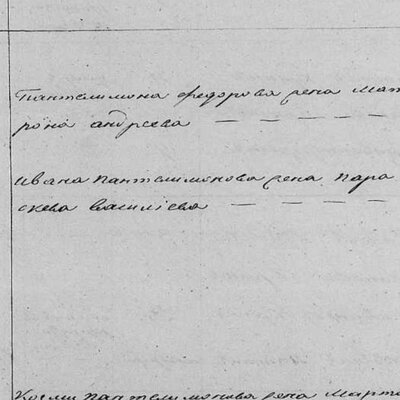 Пантелимона федорова жена мат
рона андреева — — — —
ивана пантелимонова жена пара
скева василіева — — — —
Космы пантелимонова жена марть